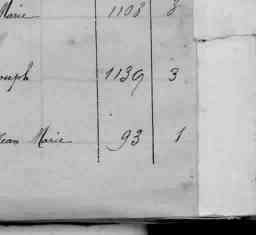 Marie 1108 8
oseph 1139 3
Jean Marie 93 1